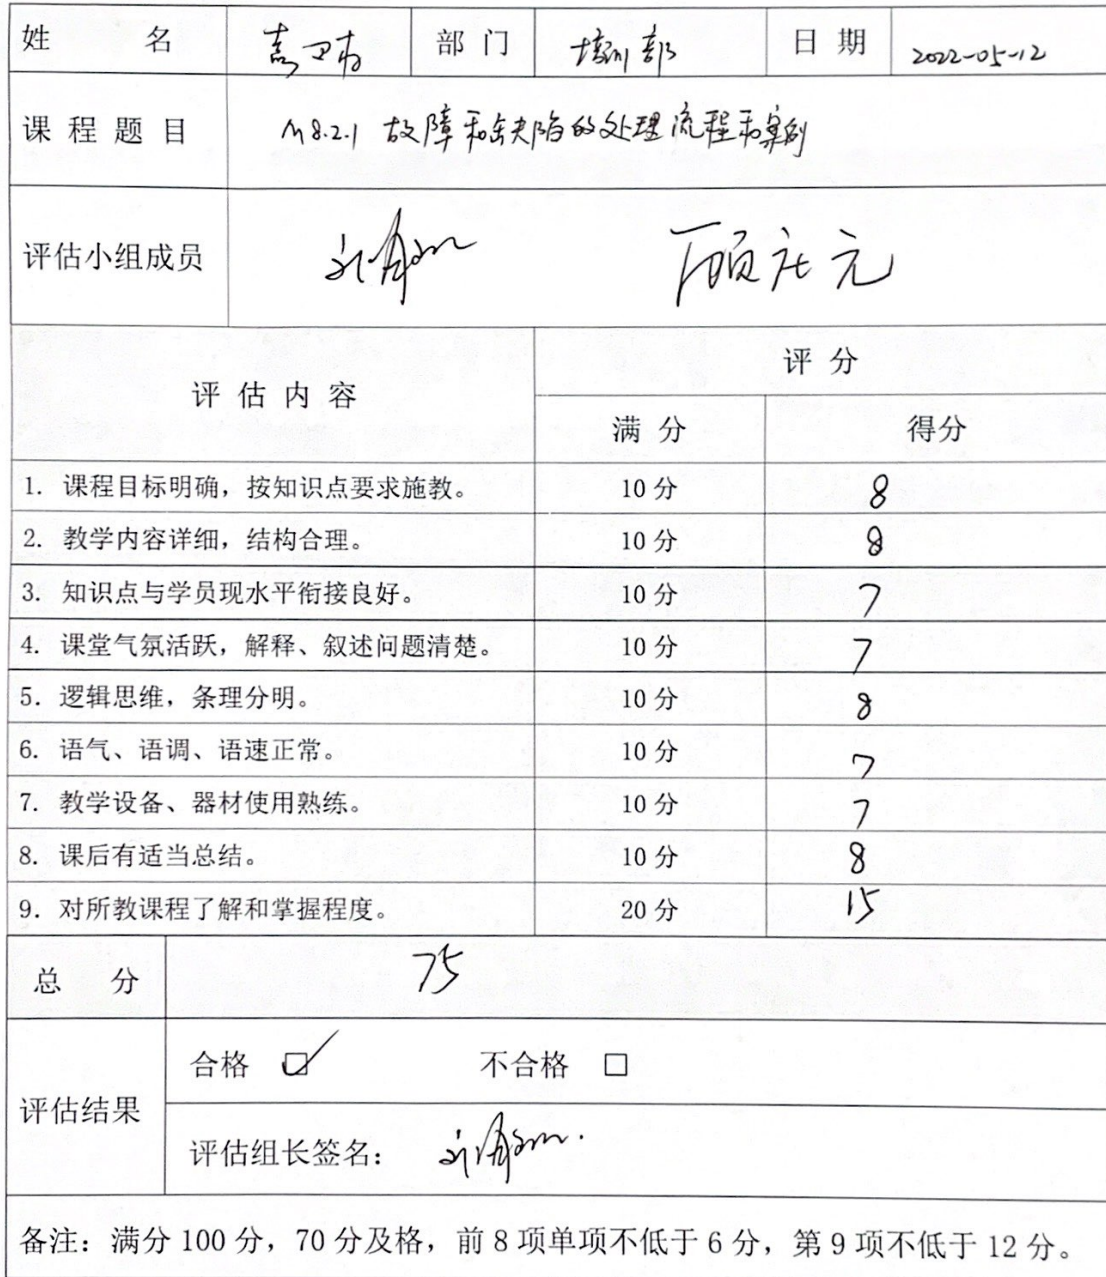 姓 名 部 门 培训部 日 期 2022-05-12
课 程 题 目 M8.2.1 故障和缺陷的处理流程和案例
评估小组成员 顾庄元
评 估 内 容 评 分
满 分 得分
1. 课程目标明确，按知识点要求施教。 10 分 8
2. 教学内容详细，结构合理。 10 分 8
3. 知识点与学员现水平衔接良好。 10 分 7
4. 课堂气氛活跃，解释、叙述问题清楚。 10 分 7
5. 逻辑思维，条理分明。 10 分 8
6. 语气、语调、语速正常。 10 分 7
7. 教学设备、器材使用熟练。 10 分 7
8. 课后有适当总结。 10 分 8
9. 对所教课程了解和掌握程度。 20 分 15
总 分 75
合格 ☑ 不合格 □
评估结果
评估组长签名：
备注：满分 100 分，70 分及格，前 8 项单项不低于 6 分，第 9 项不低于 12 分。